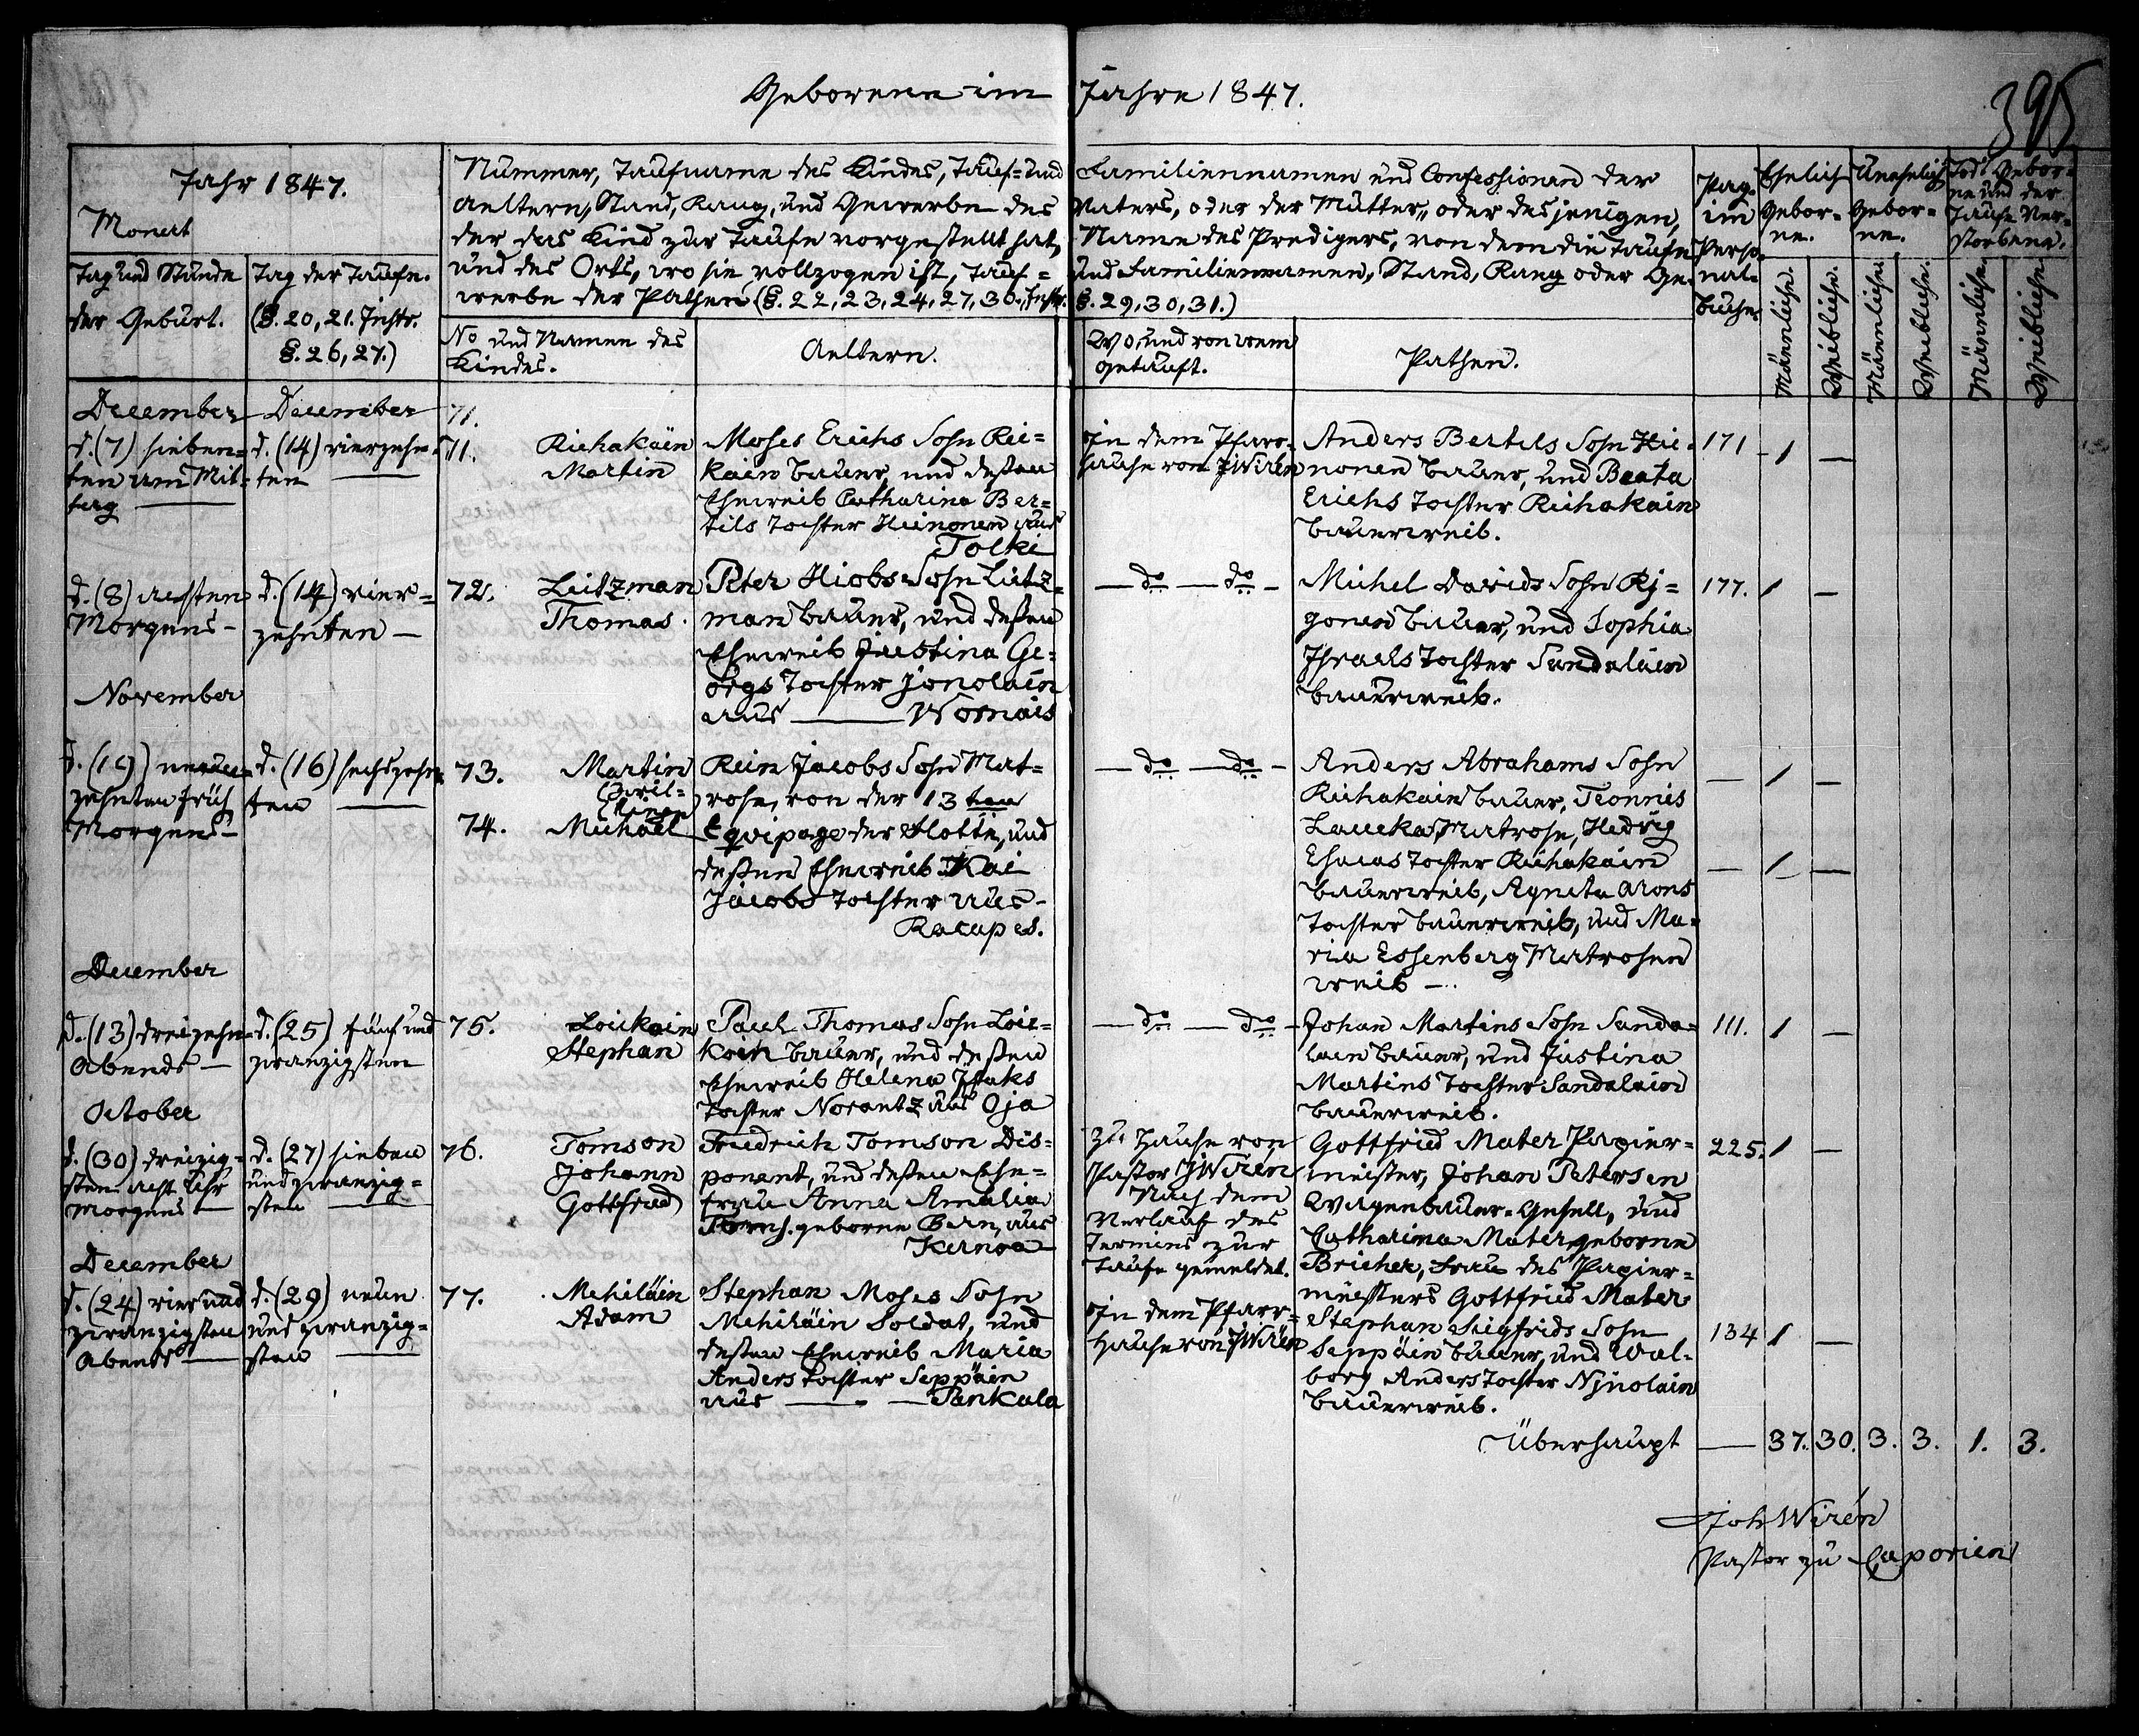 Geborene im Jahre 1847.
395
Jahr 1847.
Monat
Tag und Stunde
der Geburt.
Tag der Taufe.
(§. 20, 21. Instr.
§. 26, 27.)
Nummer, Taufname des Kindes, Tauf= und Familiennamen und Confessionen der
Aeltern, Stand, Rang, und Gewerbe des Vaters, oder der Mutter, oder desjenigen,
der das Kind zur Taufe vorgestellt hat, Name des Predigers, von dem die Taufe
und des Orts, wo sie vollzogen ist, Tauf= und Familiennamen, Stand, Rang oder Ge=
werbe der Pathen (§. 22, 23, 24, 27, 30. Instr. §. 29, 30, 31.)
No und Namen des
Kindes.
Aeltern.
Wo und von wem
getauft.
Pathen.
Pag.
im
Perso=
nal=
buche.
Ehelich
Gebor=
ne.
Unehelich
Gebor=
ne.
Todt Gebor=
ne und vor der
Taufe Ver=
storbene.
Männliche.
Weibliche.
Männliche.
Weibliche.
Männliche.
Weibliche.
December
d. (7) sieben=
ten am Mit=
tag —
December
d. (14) vierzehn=
ten —
71.
71.
Richakäin
Martin
Moses Erichs Sohn Rie=
kain Bauer, und dessen
Eheweib Catharina Ber=
tils Tochter Heinonen aus
Tolki
In dem Pfarr=
hause von JWirén
Anders Bertils Sohn Hei=
nonen Bauer, und Beata
Erichs Tochter Richakäin
Bauerweib.
171 1 —
d. (8) achten
Morgens —
d. (14) vier=
zehnten —
72.
Leitzman
Thomas.
Peter Hiobs Sohn Lietz=
man Bauer, und dessen
Eheweib Justina Ge=
orgs Tochter Jonolain
aus — Womais
— do — do —
Michel Davids Sohn Rj=
gonen Bauer, und Sophia
Israels Tochter Sandaläin
Bauerweib.
177. 1 —
November
d. (19) neun=
zehnten früh
Morgens —
d. (16) sechszehn=
ten —
73. Martin
(Zwil=
linge)
74. Michael
Rein Jacobs Sohn Mat=
rose, von der 13ten
Eqvipage der Flotte, und
dessen Eheweib Kai
Jacobs Tochter aus —
Racapes.
— do — do —
Anders Abrahams Sohn
Richakäin Bauer, Tionnis
Laucka, Matrose, Hedvig
Esaias Tochter Richakäin
Bauerweib, Agneta Arons
Tochter Bauerweib, und Ma=
ria Essenberg Matrosen
weib —
— 1 —
— 1 —
December
d. (13) dreizehn=
Abends —
d. (25) fünf und
zwanzigsten
75.
Loikain
Stephan
Paul Thomas Sohn Loi=
koin Bauer, und dessen
Eheweib Helena Isaks
Tochter Norantz aus Oja
— do — do —
Johan Martins Sohn Sanda=
lain Bauer, und Justina
Martins Tochter Sandalain
Bauerweib.
111. 1 —
October
d. (30) dreizig=
sten acht Uhr
morgens —
d. (27) sieben
und zwanzig=
sten —
76.
Tomson
Johann
Gottfried
Friedrich Tomson Dis=
ponent, und dessen Ehe=
frau Anna Amalia
Toms. geborne Bern, aus
Kernoa
Zu Hause von
Pastor JWirén
Nach dem
Verlauf des
Termins zur
Taufe gemeldet.
Gottfried Mater Papier=
meister, Johan Petersen
Wagenbauer=Gesell, und
Catharina Mater geborne
Bricher, Frau des Papier=
meisters Gottfried Mater
225. 1 —
December
d. (24) vier und
zwanzigsten
Abends —
d. (29) neun
und zwanzig=
sten —
77.
Mehiläin
Adam
Stephan Moses Sohn
Mehiläin Soldat, und
dessen Eheweib Maria
Anders Tochter Seppäin
aus — Pankala
In dem Pfarr=
hause von JWirén
Stephan Siegfrids Sohn
Seppäin Bauer, und Wal=
borg Anders Tochter Njnolain
Bauerweib.
134 1 —
Überhaupt — 37. 30. 3. 3. 1. 3.
Joh Wirén
Pastor zu Caporien